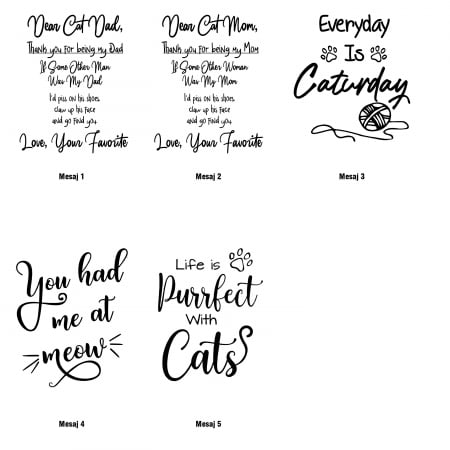 Dear Cat Dad,
Thank you for being my Dad
If Some Other Man
Was My Dad
I'd piss on his shoes
claw up his face
and go find you.
Love, Your Favorite
Mesaj 1
Dear Cat Mom,
Thank you for being my Mom
If Some Other Woman
Was My Mom
I'd piss on his shoes
claw up his face
and go find you.
Love, Your Favorite
Mesaj 2
Everyday
Is
Caturday
Mesaj 3
You had
me at
meow
Mesaj 4
Life is
Purrfect
With
Cats
Mesaj 5